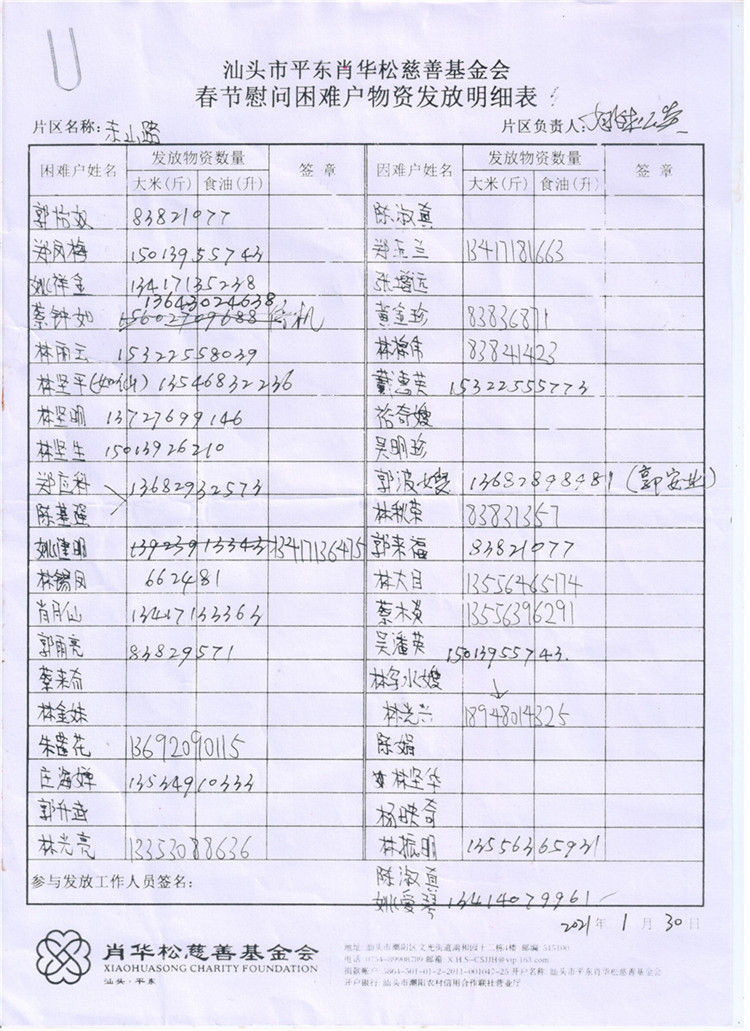 汕头市平东肖华松慈善基金会
春节慰问困难户物资发放明细表
片区名称：东山路 片区负责人：
困难户姓名 发放物资数量 签 章 困难户姓名 发放物资数量 签 章
大米(斤) 食油(升) 大米(斤) 食油(升)
83821077 陈淑真
郑凤梅 15013955743 郑玉兰 13417181663
姚祥金 13417135238 张
13643024638
蔡钟如 15602709688 停机 黄金珍 83836871
林雨云 15322558039 83841423
林坚平 13546832236 惠英 15322555773
林坚明 13727699146 裕奇嫂
林坚生 15013926210 吴明珍
郑应科 13682932573 郭波嫂 13682898481 (郭安业)
陈 林秋荣 83831357
姚建明 13923913343 13417136475 郭来福 83821077
林锡凤 662481 林大目 13556465174
肖月仙 13417133363 蔡木炎 13556396291
郭雨亮 83829571 吴潘英 15013955743.
蔡来有 嫂
林金妹 林光兴 18948014325
朱莲花 13692090115 陈娟
庄海婵 13534910333 林坚华
郭升 杨映奇
林光亮 13353088636 林振明 13556365931
参与发放工作人员签名： 陈淑真
姚爱琴 13414079961
2021年 1 月 30 日
肖华松慈善基金会
XIAOHUASONG CHARITY FOUNDATION
汕头·平东
地址: 汕头市潮阳区文光街道南和园十二栋4楼 邮编 515100
电话: 0754-89908789 邮箱: X.H.S-CSJJH@vip.163.com
捐款账户: 5864-501-01-2-2011-001047-25 开户名称: 汕头市平东肖华松慈善基金会
开户银行: 汕头市潮阳农村信用合作联社营业厅